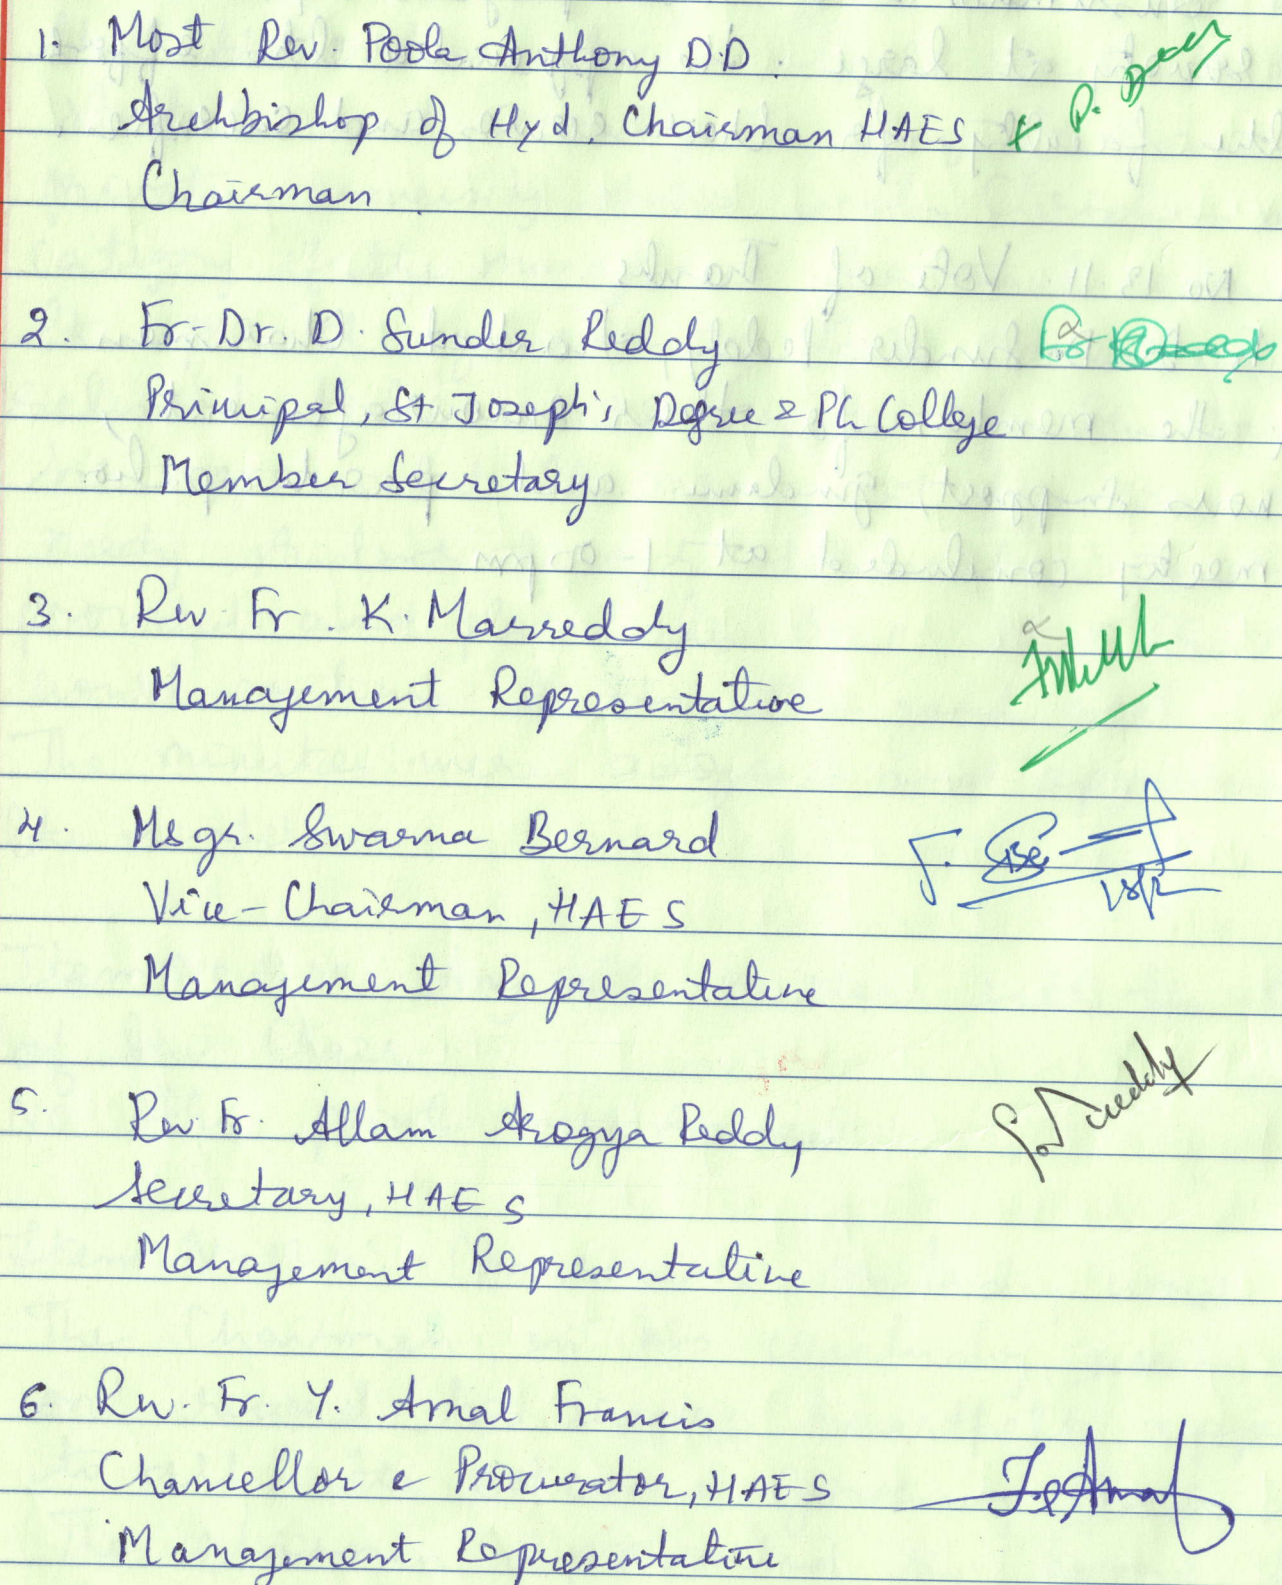 1. Most Rev. Poola Anthony D.D.
Archbishop of Hyd, Chairman HAES +
Chairman.
2. Fr. Dr. D. Sunder Reddy
Principal, St Joseph's Degree & PG College
Member Secretary
3. Rev Fr. K. Marreddy
Management Representative
4. Msgr. Swarna Bernard
Vice-Chairman, HAES
Management Representative
5. Rev Fr. Allam Arogya Reddy
Secretary, HAES
Management Representative
6. Rev. Fr. Y. Amal Francis
Chancellor & Procurator, HAES
Management Representative